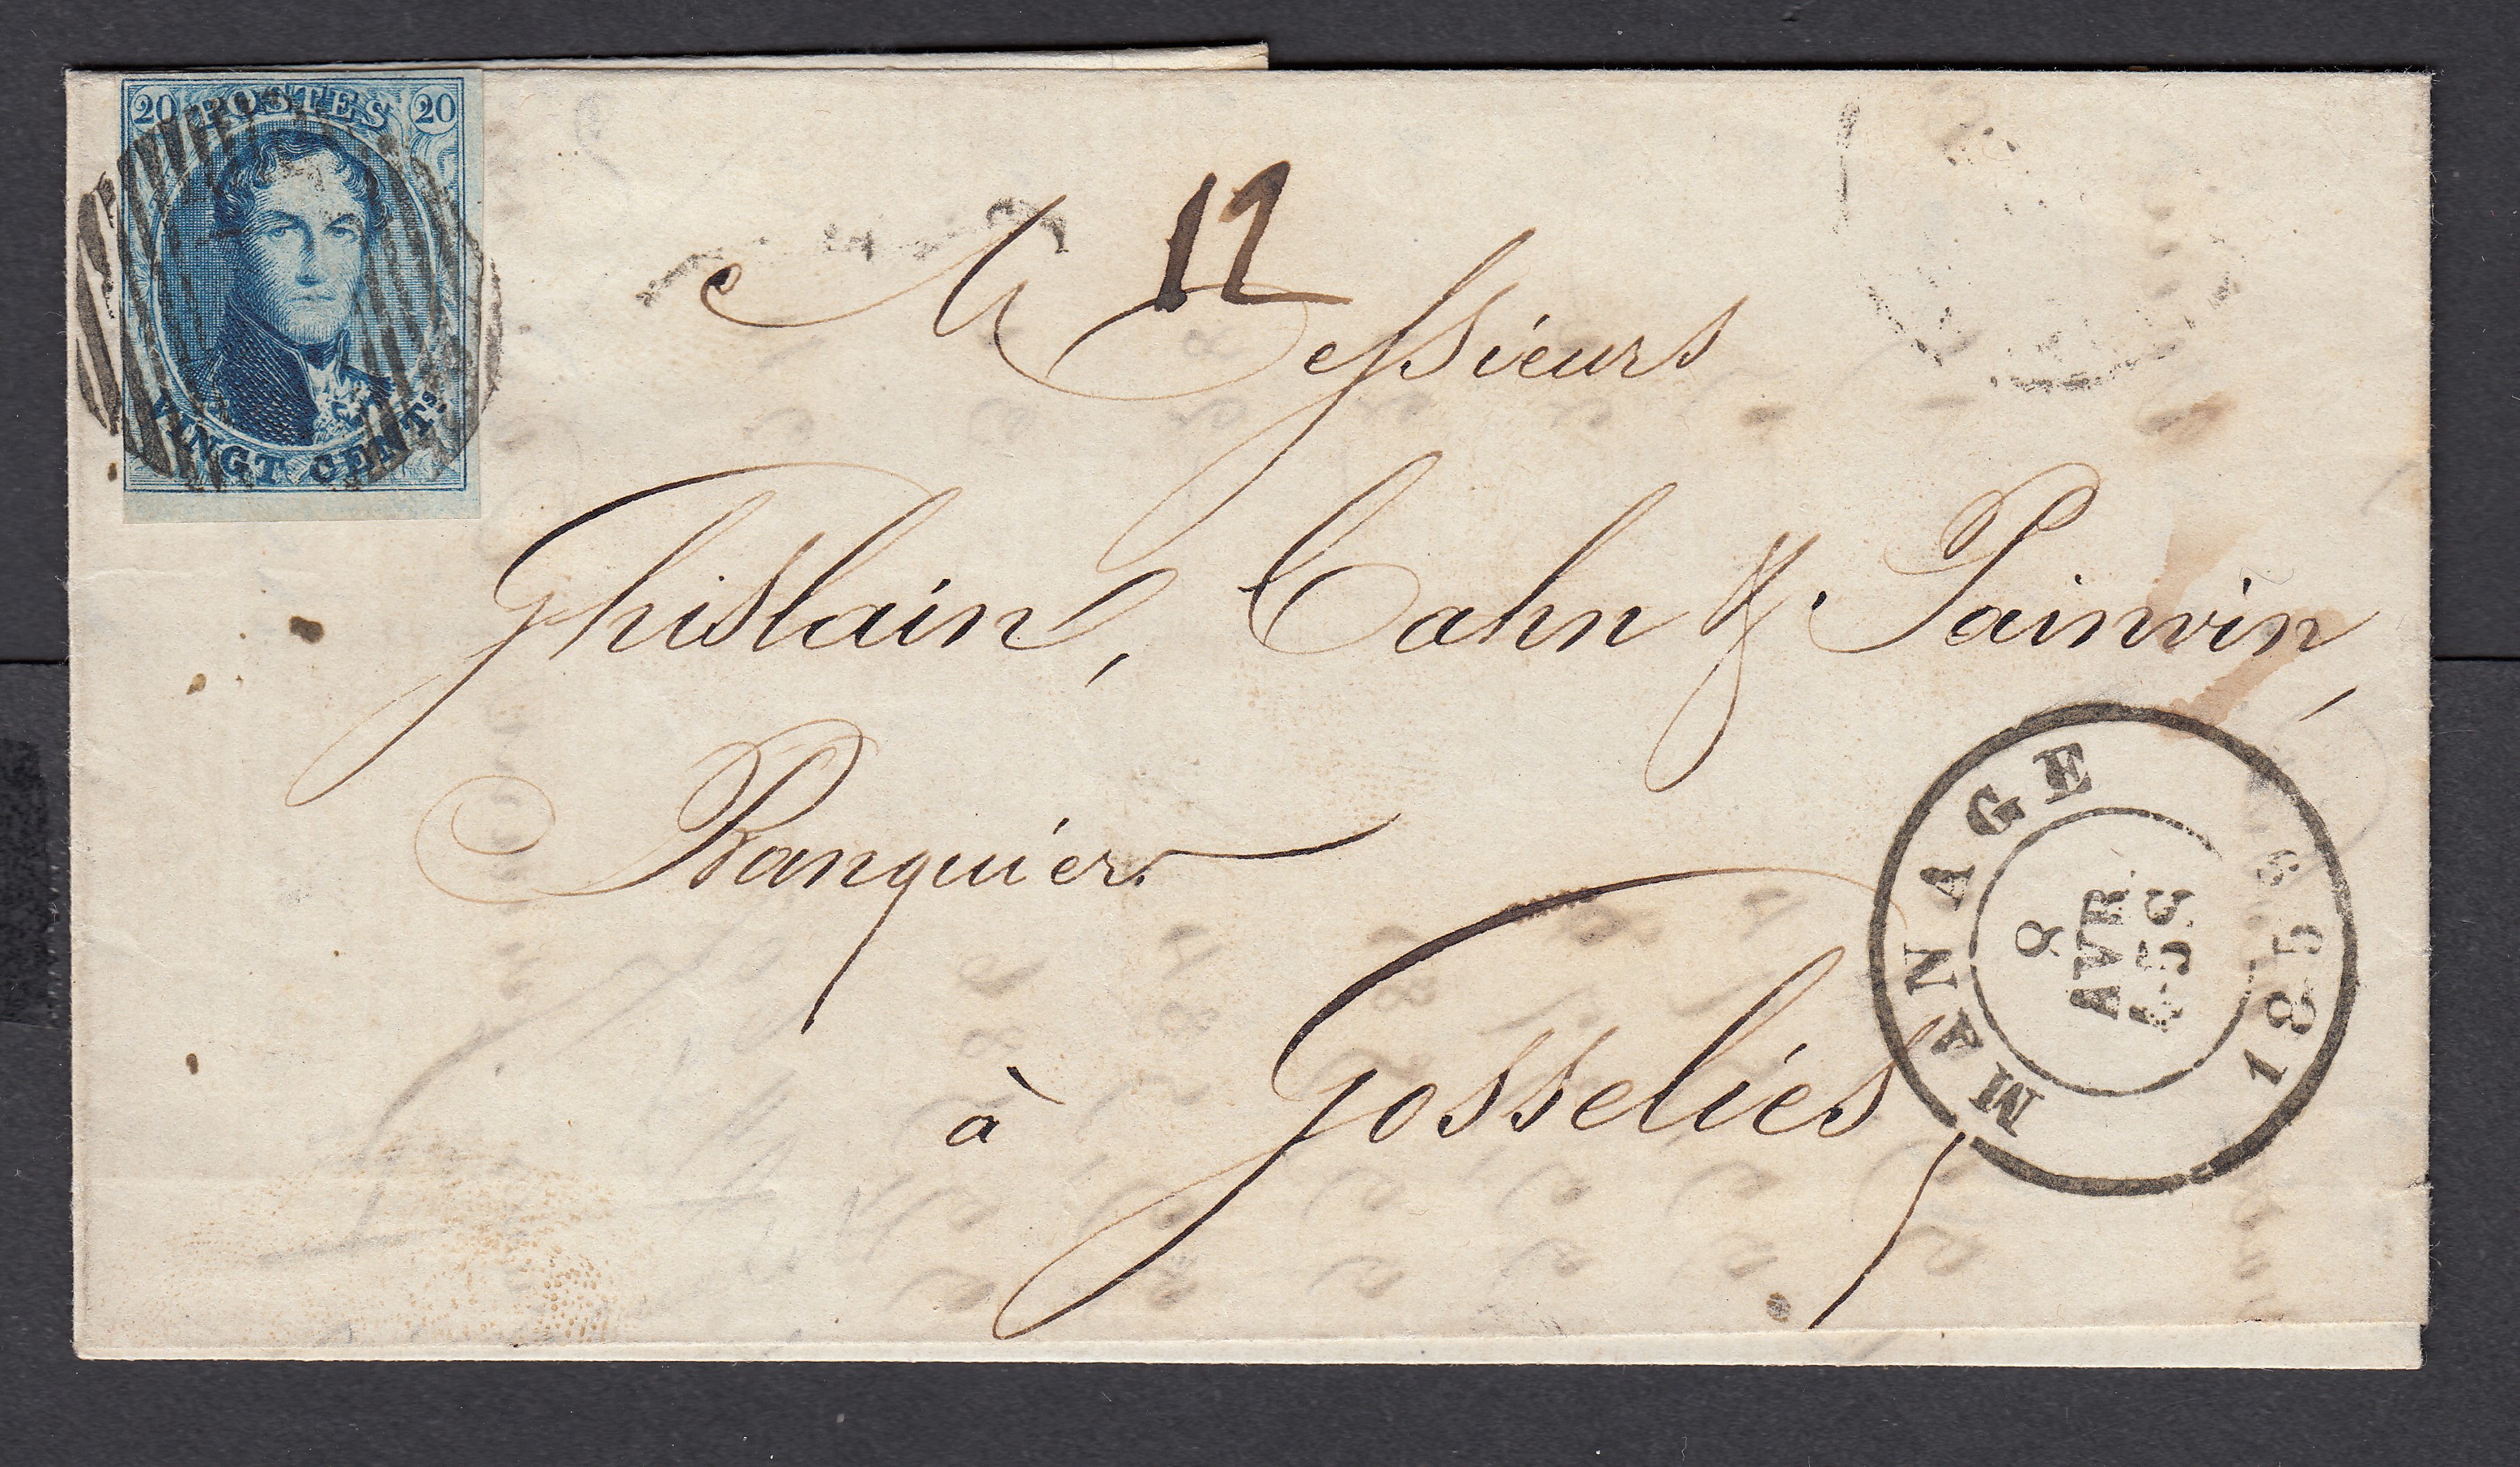 20 POSTES 20
VINGT CENTS.
12
Messieurs
Ghislain, Cahn & Painvin,
Banquier
à Gosselies
MANAGE
8
AVR.
4-5S
185